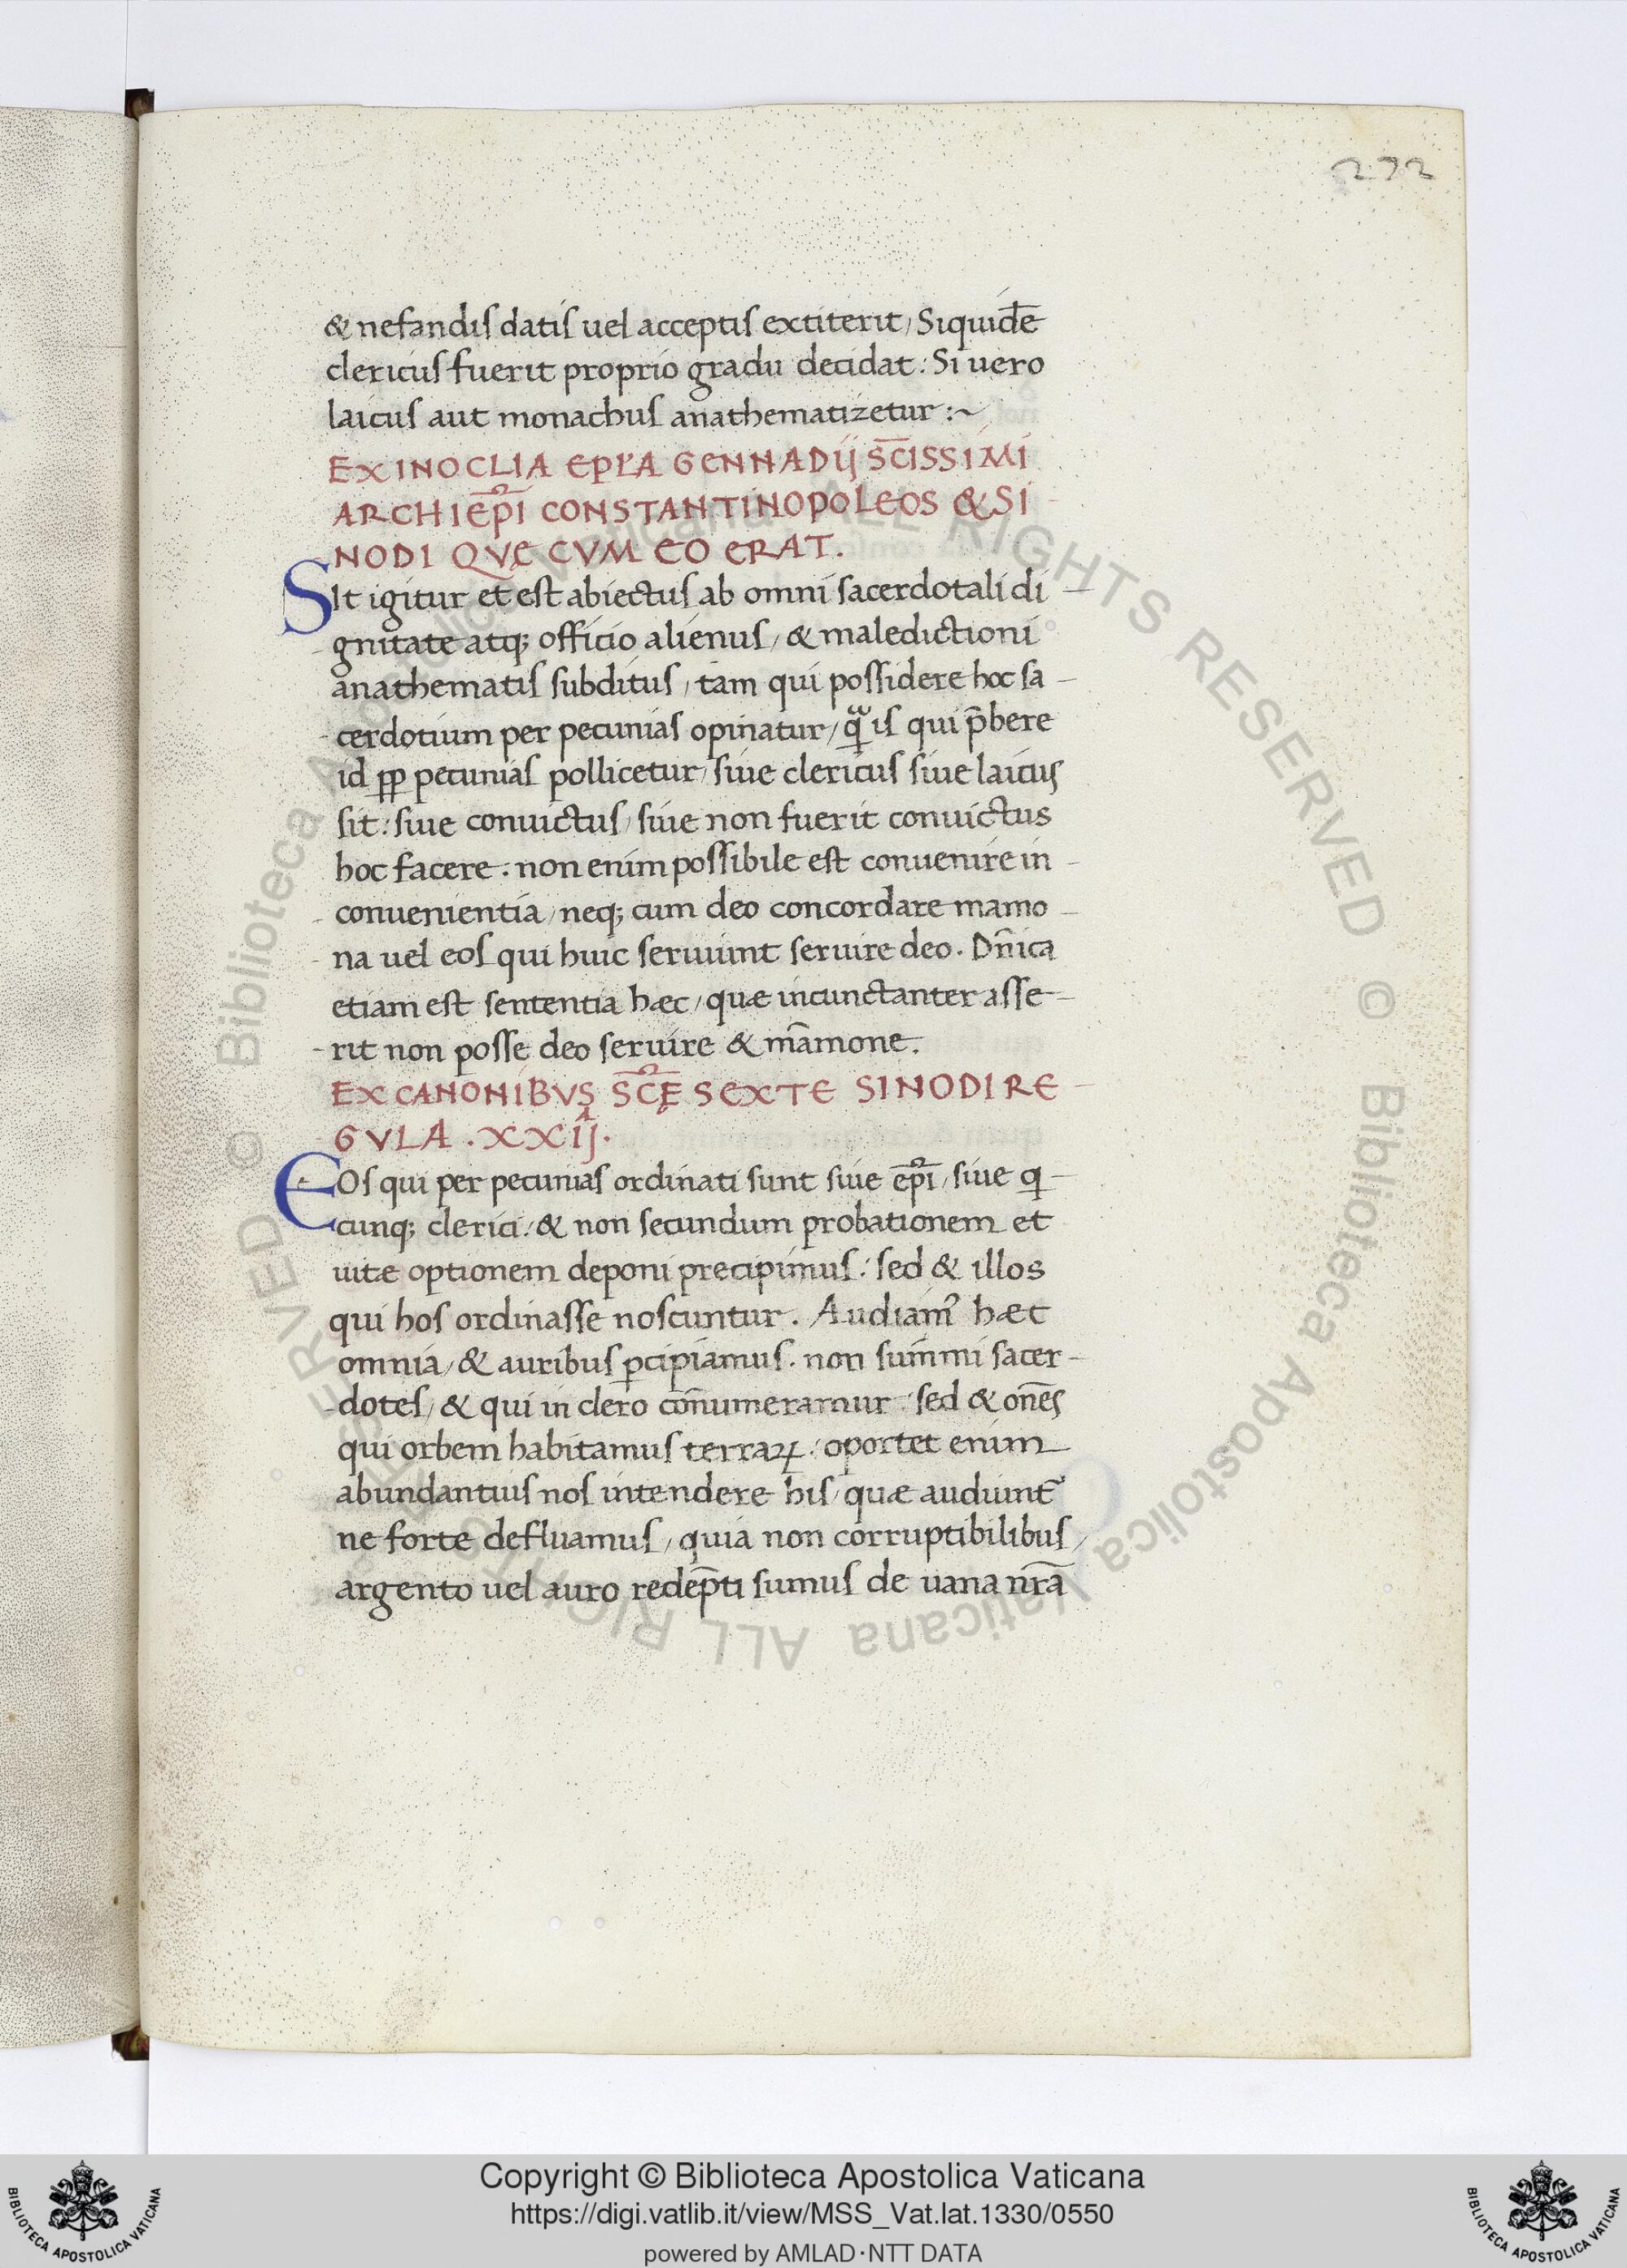 272
& nefandis datis uel acceptis extiterit, Siquidē
clericus fuerit proprio gradu decidat: Si uero
laicus aut monachus anathematizetur :~
EX INOCLIA EPL'A GENNADIJ SC̄ISSIMI
ARCHIEP̄I CONSTANTINOPOLEOS & SI
NODI QVĘ CVM EO ERAT.
SIt igitur et est abiectus ab omni sacerdotali di
gnitate atq; officio alienus, & maledictioni
anathematis subditus, tam qui possidere hoc sa
cerdotium per pecunias opinatur, qͣ is qui p̄bere
id ꝓp pecunias pollicetur, siue clericus siue laicus
sit: siue conuictus, siue non fuerit conuictus
hoc facere: non enim possibile est conuenire in
conuenientia, neq; cum deo concordare mamo
na uel eos qui huic seruiunt seruire deo. Dn̄ica
etiam est sententia hæc, quæ incunctanter asse
rit non posse deo seruire & mām̄one.
EX CANONIBVS SC̄Ę SEXTE SINODI RE
GVLA .XXIJ.
EOs qui per pecunias ordinati sunt siue ep̄i, siue q
cunq; clerici: & non secundum probationem et
uitæ optionem deponi precipimus: sed & illos
qui hos ordinasse noscuntur. Audiamꝰ hæc
omnia, & auribus ꝑcipiamus. non summi sacer
dotes, & qui in clero cōnumeramur: sed & om̄es
qui orbem habitamus terraꝝ: oportet enim
abundantius nos intendere his, quæ audiunt᷑
ne forte defluamus, quia non corruptibilibus,
argento uel auro redēpti sumus de uana nr̄a
Copyright © Biblioteca Apostolica Vaticana
https://digi.vatlib.it/view/MSS_Vat.lat.1330/0550
powered by AMLAD·NTT DATA
BIBLIOTECA APOSTOLICA VATICANA
BIBLIOTECA APOSTOLICA VATICANA
© Biblioteca Apostolica Vaticana ALL RIGHTS RESERVED © Biblioteca Apostolica Vaticana ALL RIGHTS RESERVED